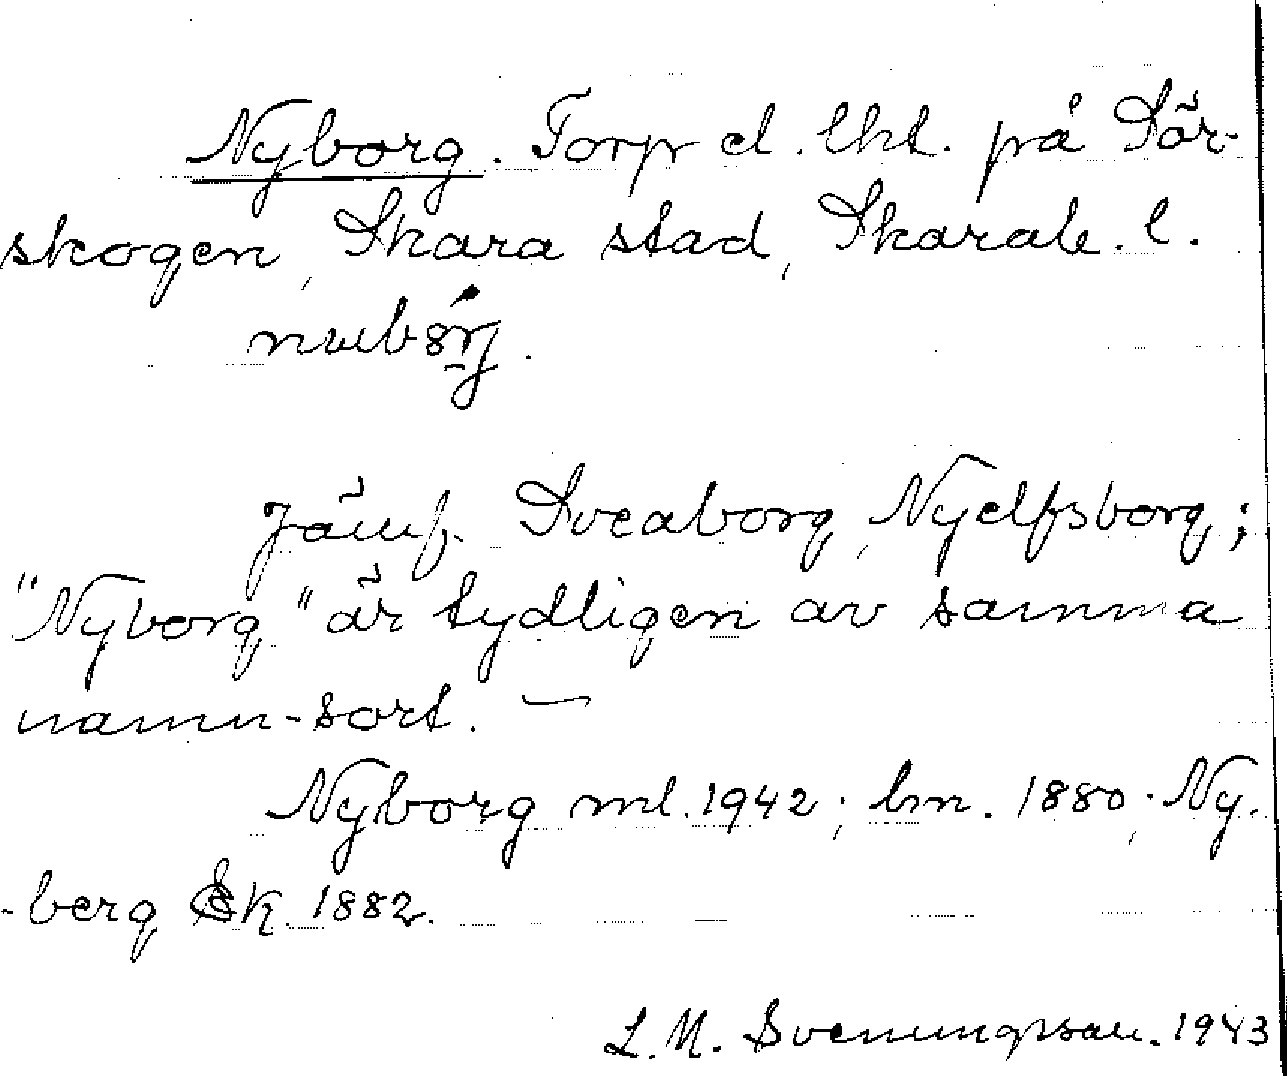 Nyborg. Torp el. lht. på Sör-
skogen, Skara stad, Skarab. l.
Jämf. Sveaborg, Nyelfsborg;
"Nyborg" är tydligen av samma
namn-sort. —
Nyborg ml. 1942; bm. 1880; Ny-
-berg Sk. 1882.
L. M. Svenungsson. 1943